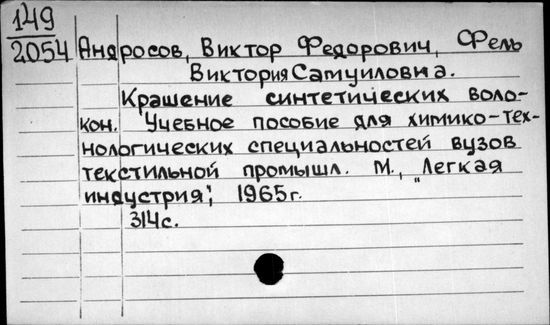 149
2054 Андросов, Виктор Федорович, Фель
Виктория Самуиловна.
Крашение синтетических воло-
кон. Учебное пособие для химико-тех-
нологических специальностей вузов
текстильной промышл. М., „Легкая
индустрия", 1965г.
314с.